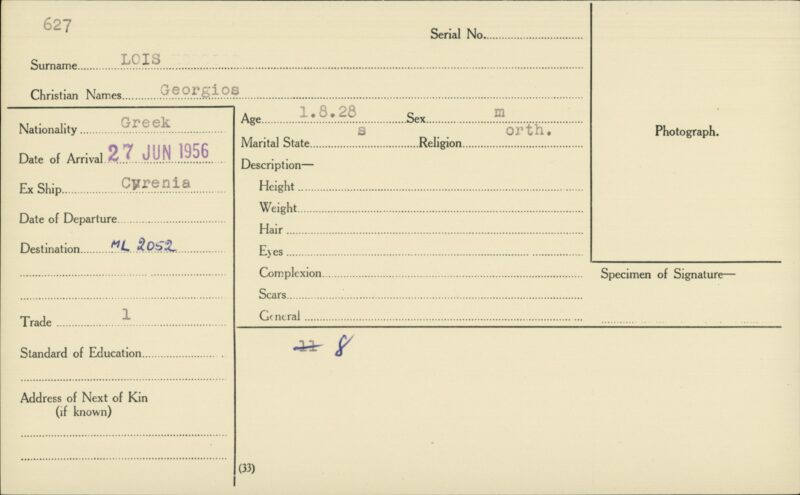 627
Serial No.
Surname LOIS
Christian Names Georgios
Nationality Greek
Date of Arrival 27 JUN 1956
Ex Ship Cyrenia
Date of Departure
Destination ML 2052
Trade 1
Standard of Education
Address of Next of Kin
(if known)
Age 1.8.28 Sex m
Marital State s Religion orth.
Description—
Height
Weight
Hair
Eyes
Complexion
Scars
General
11 8
(33)
Photograph.
Specimen of Signature—